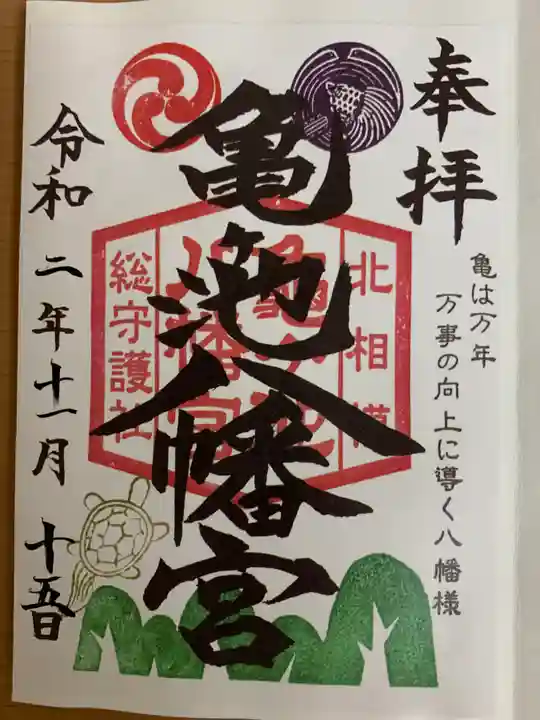 奉拝
亀は万年
万事の向上に導く八幡様
亀池八幡宮
北相模
総守護社
令和二年十一月十五日